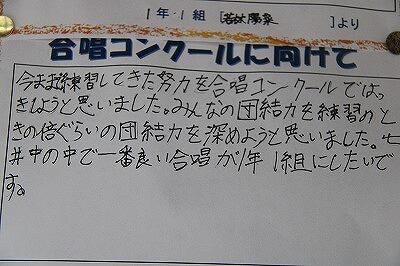 1年.1組 [若林陽菜]より
合唱コンクールに向けて
今まで練習してきた努力を合唱コンクールでは。
きしようと思いました。みんなの団結力を練習のと
きの倍ぐらいの団結力を深めようと思いました。七
井中の中で一番良い合唱が1年1組にしたいで
す。